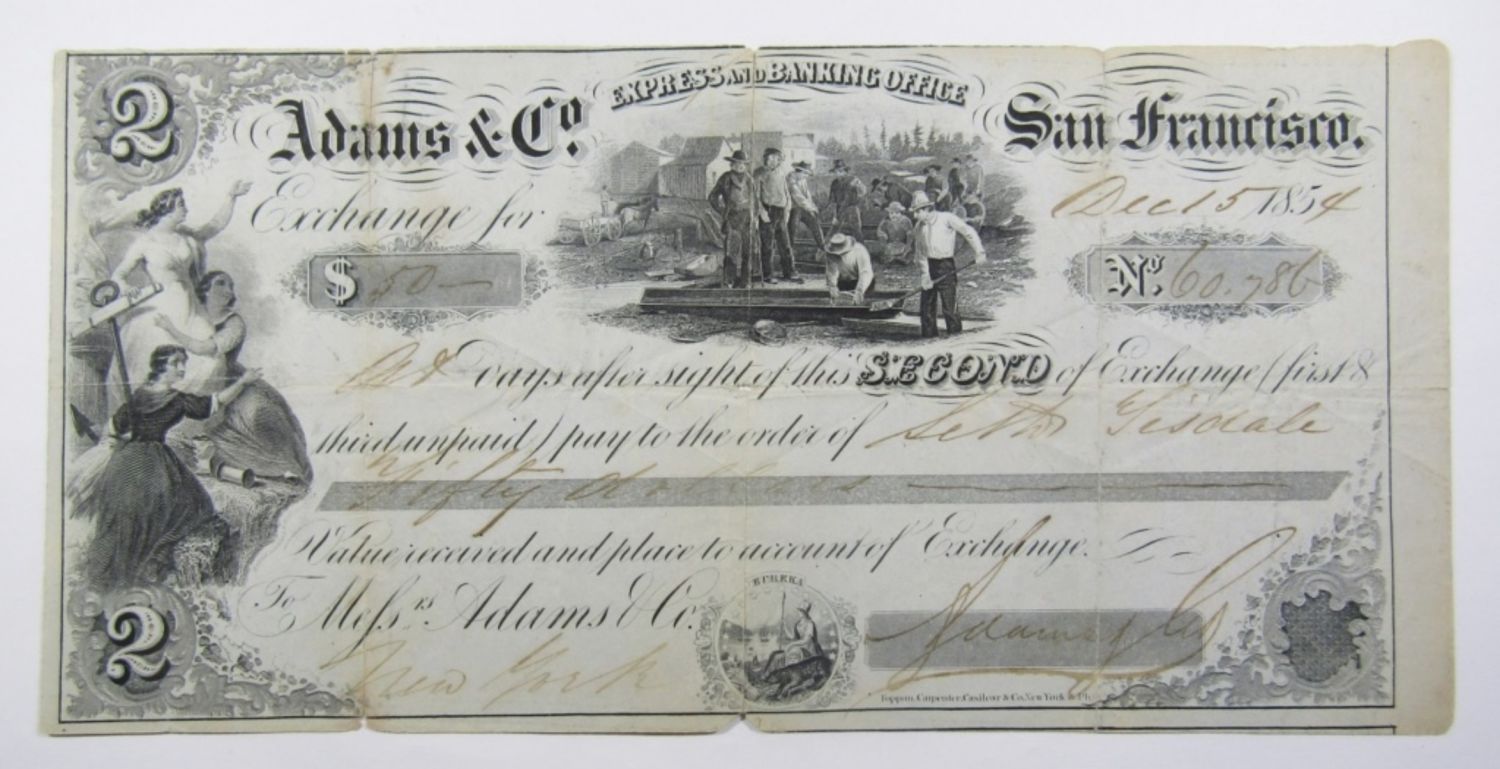 2
EXPRESS AND BANKING OFFICE
Adams & Co. San Francisco.
Exchange for Dec 15 1854
$ 50 — No. 60.786
At Days after sight of this SECOND of Exchange (first &
third unpaid) pay to the order of Seth Tisdale
Fifty dollars
Value received and place to account of Exchange.
To Messrs. Adams & Co. EUREKA Adams & Co
2 New York
Toppan, Carpenter, Casilear & Co. New York & Ph